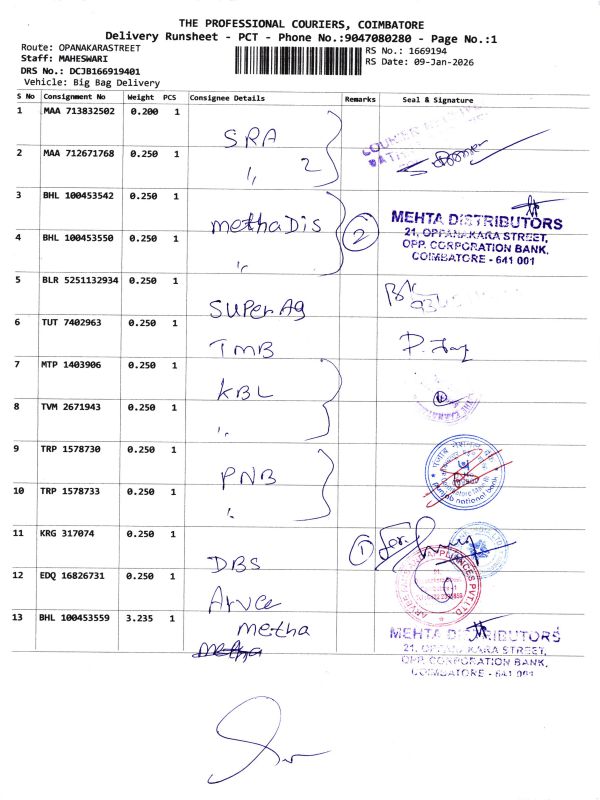 THE PROFESSIONAL COURIERS, COIMBATORE
Delivery Runsheet - PCT - Phone No.:9047080280 - Page No.:1
Route: OPANAKARASTREET
RS No.: 1669194
Staff: MAHESWARI
RS Date: 09-Jan-2026
DRS No.: DCJB166919401
Vehicle: Big Bag Delivery
S No Consignment No Weight PCS Consignee Details Remarks Seal & Signature
1 MAA 713832502 0.200 1 SRA
2 MAA 712671768 0.250 1 " 2
3 BHL 100453542 0.250 1 methaDis
4 BHL 100453550 0.250 1 " 2
MEHTA DISTRIBUTORS
21, OPPANAKARA STREET,
OPP. CORPORATION BANK,
COIMBATORE - 641 001
5 BLR 5251132934 0.250 1 SUPer Ag
6 TUT 7402963 0.250 1 TMB
7 MTP 1403906 0.250 1 KBL
8 TVM 2671943 0.250 1 "
9 TRP 1578730 0.250 1 PNB
10 TRP 1578733 0.250 1 "
punjab national bank
11 KRG 317074 0.250 1 DBS 1 for.
12 EDQ 16826731 0.250 1 Arvee
13 BHL 100453559 3.235 1 metha
metha
MEHTA DISTRIBUTORS
21, OPPANAKARA STREET,
OPP. CORPORATION BANK,
COIMBATORE - 641 001